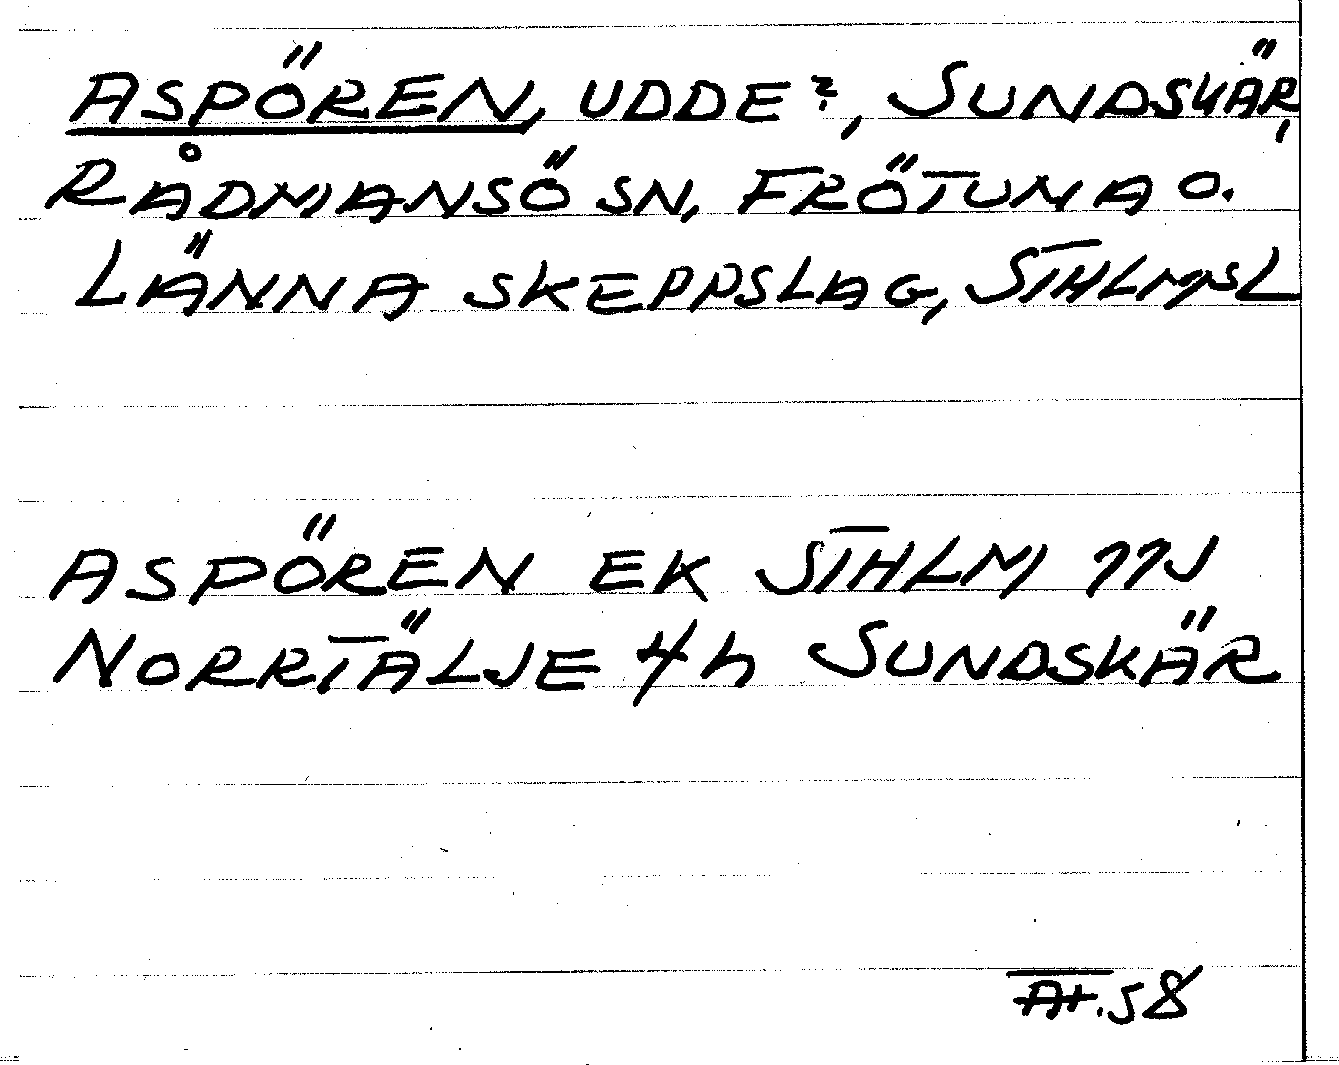 ASPÖREN, UDDE?, SUNDSKÄR,
RÅDMANSÖ SN, FRÖTUNA O.
LÄNNA SKEPPSLAG, STHLMSL
ASPÖREN EK STHLM 11J
NORRTÄLJE 4h SUNDSKÄR
58